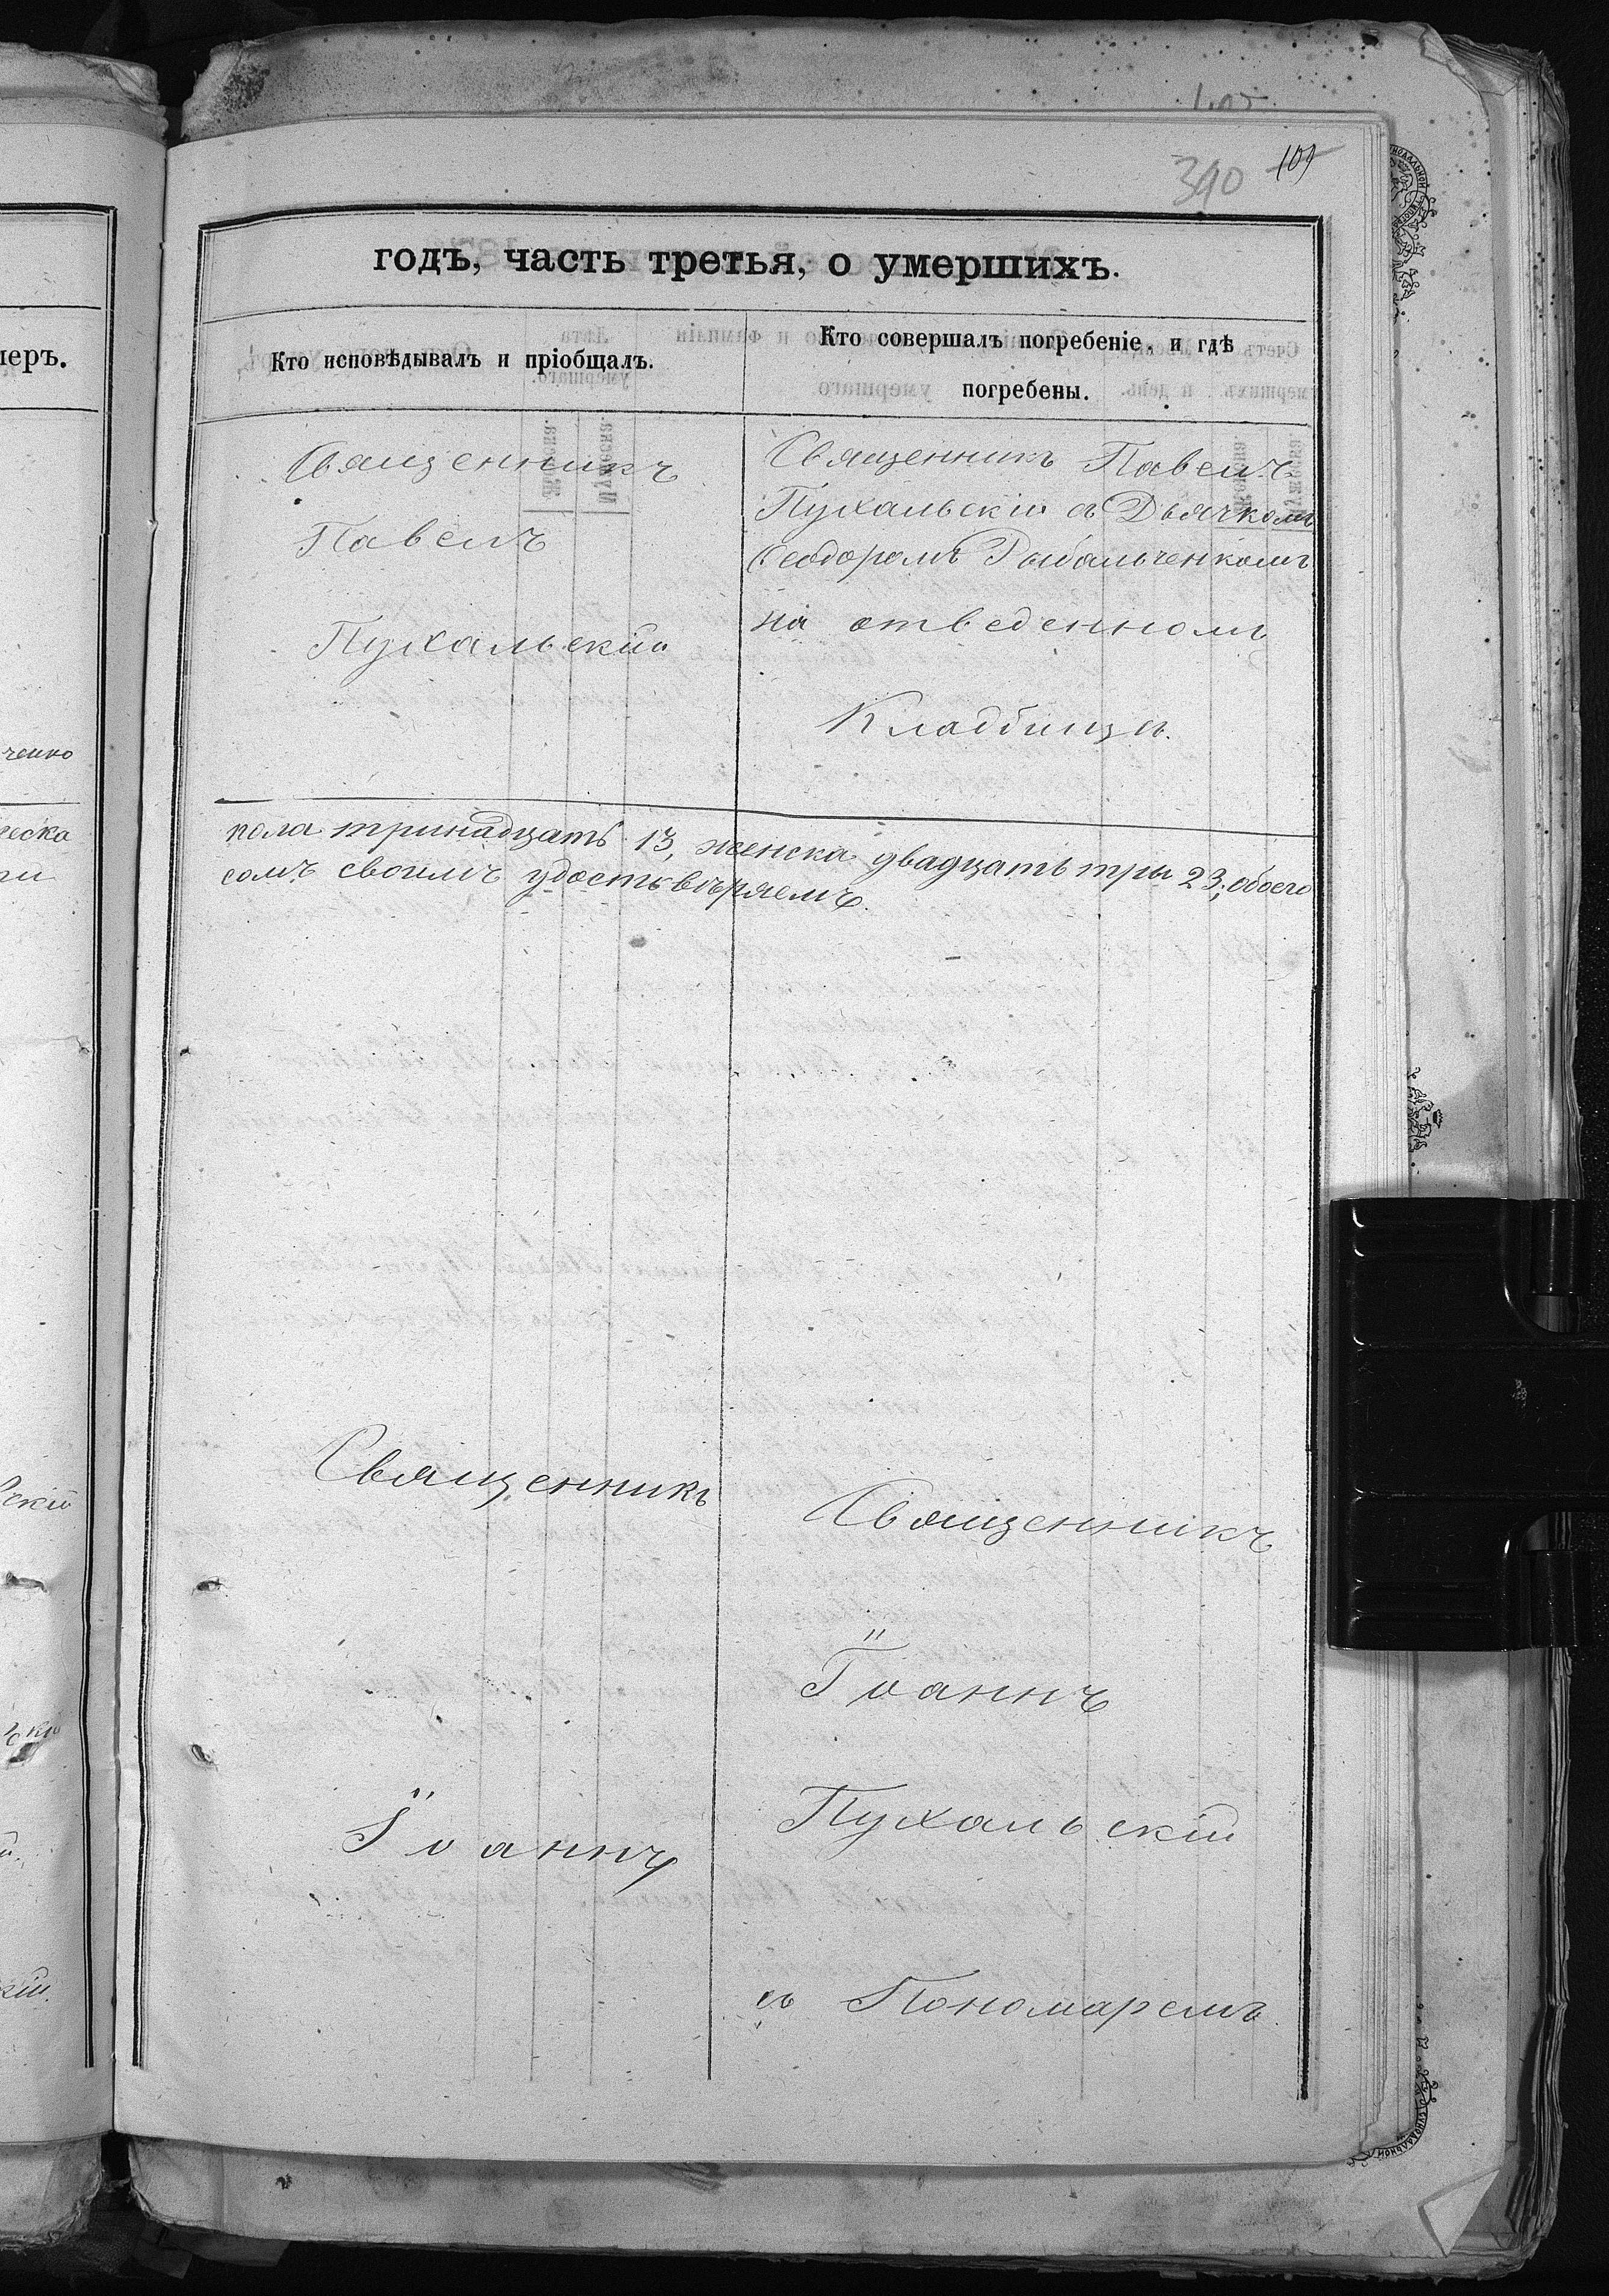 390 109
годъ, часть третья, о умершихъ.
Кто исповѣдывалъ и пріобщалъ.
Кто совершалъ погребеніе, и гдѣ
погребены.
Священникъ
Павелъ
Пухальскій
Священникъ Павелъ
Пухальскій съ Дьячкомъ
Ѳеодоромъ Рыбальченкомъ
на отведенномъ
Кладбищѣ.
пола тринадцать 13, женска двадцать тры 23, обоего
сомъ своимъ удостовѣряемъ.
Священникъ
Іоаннъ
Священникъ
Іоаннъ
Пухальскій
съ Пономаремъ
перъ.
ченко
ческа
скій
кій.